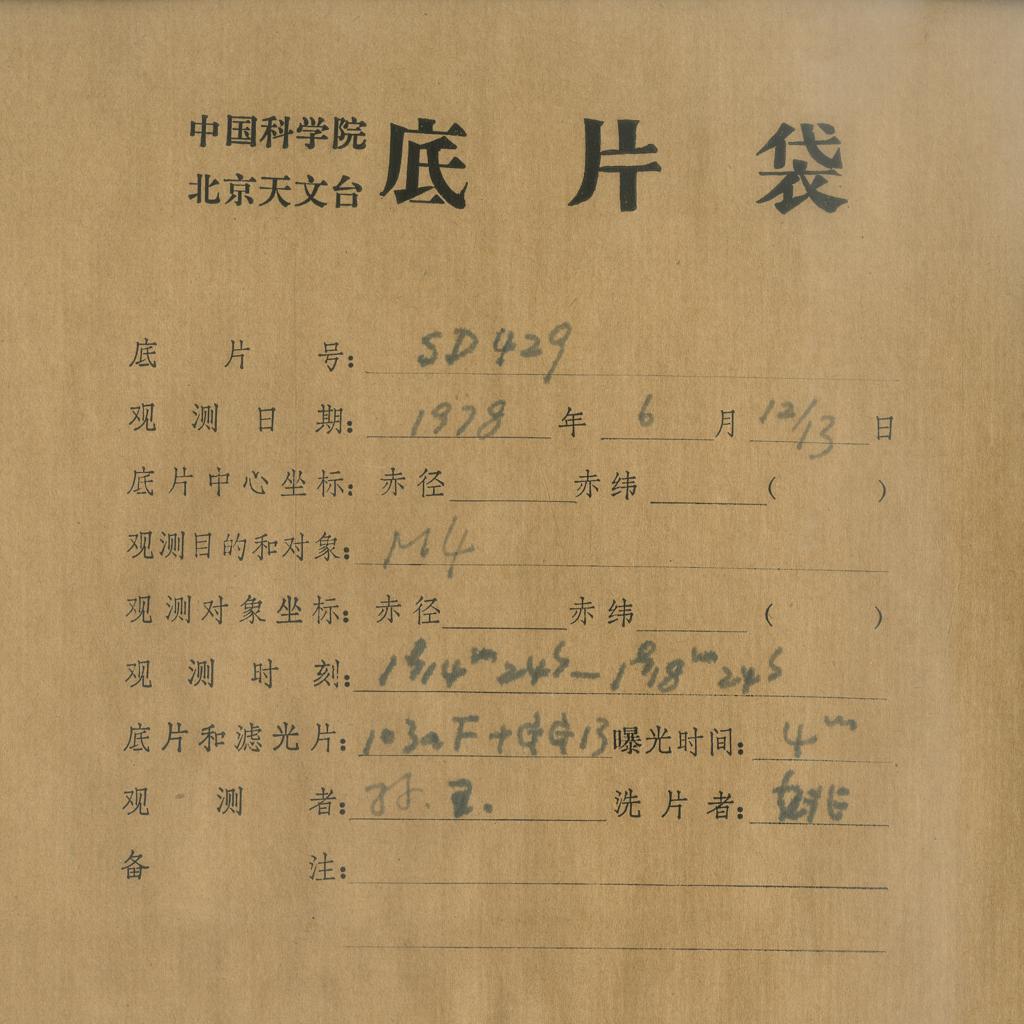 中国科学院
北京天文台 底片袋
底片号: SD429
观测日期: 1978年 6月 12/13日
底片中心坐标: 赤径 赤纬 ( )
观测目的和对象: M4
观测对象坐标: 赤径 赤纬 ( )
观测时刻: 1时14m24s—1时18m24s
底片和滤光片: 103aF+GG13 曝光时间: 4m
观测者: 孙. 王. 洗片者: 姚
备注: